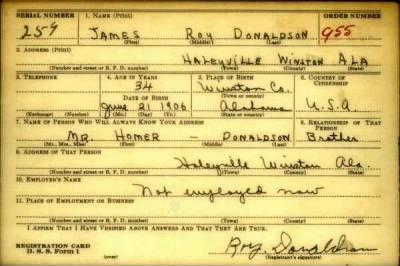 SERIAL NUMBER 1. NAME (Print) ORDER NUMBER
257 JAMES ROY DONALDSON 955
(First) (Middle) (Last)
2. ADDRESS (Print)
HALEYVILLE WINSTON ALA
(Number and street or R. F. D. number) (Town) (County) (State)
3. TELEPHONE 4. AGE IN YEARS 5. PLACE OF BIRTH 6. COUNTRY OF CITIZENSHIP
34 Winston Co.
DATE OF BIRTH (Town or county)
June 21 1906 Alabama U.S.A
(Exchange) (Number) (Mo.) (Day) (Yr.) (State or country)
7. NAME OF PERSON WHO WILL ALWAYS KNOW YOUR ADDRESS 8. RELATIONSHIP OF THAT PERSON
MR. HOMER — DONALDSON Brother
(Mr., Mrs., Miss) (First) (Middle) (Last)
9. ADDRESS OF THAT PERSON
Haleyville Winston Ala.
(Number and street or R. F. D. number) (Town) (County) (State)
10. EMPLOYER'S NAME
Not employed now
11. PLACE OF EMPLOYMENT OR BUSINESS
(Number and street or R. F. D. number) (Town) (County) (State)
I AFFIRM THAT I HAVE VERIFIED ABOVE ANSWERS AND THAT THEY ARE TRUE.
REGISTRATION CARD
D. S. S. Form 1 Roy Donaldson
(Registrant's signature)